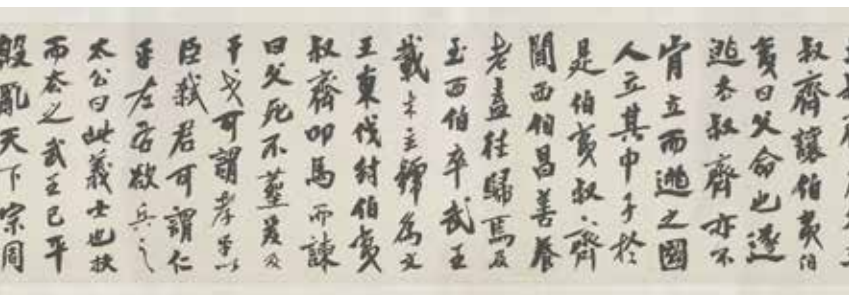 叔齊讓伯夷伯
夷曰父命也遂
逃去叔齊亦不
肯立而逃之國
人立其中子於
是伯夷叔〻齊
聞西伯昌善養
老盍往歸焉及
至西伯卒武王
載木主號為文
王東伐紂伯夷
叔齊叩馬而諫
曰父死不葬爰及
干戈可謂孝乎以
臣弒君可謂仁
乎左右欲兵之
太公曰此義士也扶
而去之武王已平
殷亂天下宗周